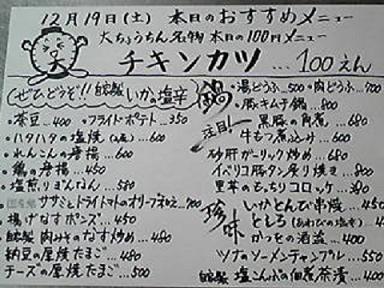 12月19日(土) 本日のおすすめメニュー
大ちょうちん名物 本日の100円メニュー
大
チキンカツ...100えん
ぜひどうぞ!! 自家製 いかの塩辛
・茶豆...400 ・フライドポテト...350
・ハタハタの塩焼 ...600
・れんこんの唐揚...450
・鶏の唐揚...450
・塩煎りぎんなん...580
ササミとドライトマトのオリーブあえ...
・揚げなすポンズ...450
・自家製 肉みそのなす炒め...480
納豆の厚焼たまご...480
チーズの厚焼たまご...500
鍋 ・湯どうふ...500 ・肉どうふ...700
・豚キムチ鍋...800
注目! ・黒豚の角煮...680
・牛もつ煮込み...600
・砂肝ガーリック炒め...680
・イベリコ豚タン炙り焼き...800
・里芋のもっちりコロッケ
珍味 ・いかとんび串焼...450
・としろ(あわびの塩辛)
・かつおの酒盗...400
・ツナのソーメンチャンプル...550
自家製 塩こんぶの佃煮茶漬...400